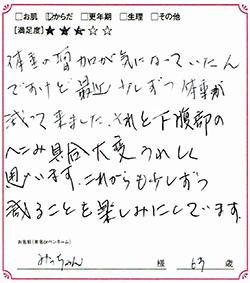 □お肌 ☑からだ □更年期 □生理 □その他
[満足度]★★★☆☆
体重の増加が気になっていたん
ですけど最近少しずつ体重が
減って来ました、それと下腹部の
へこみ具合大変うれしく
思います、これからも少しずつ
減ることを楽しみにしています
お名前(本名orペンネーム)
みっちゃん 様 63歳